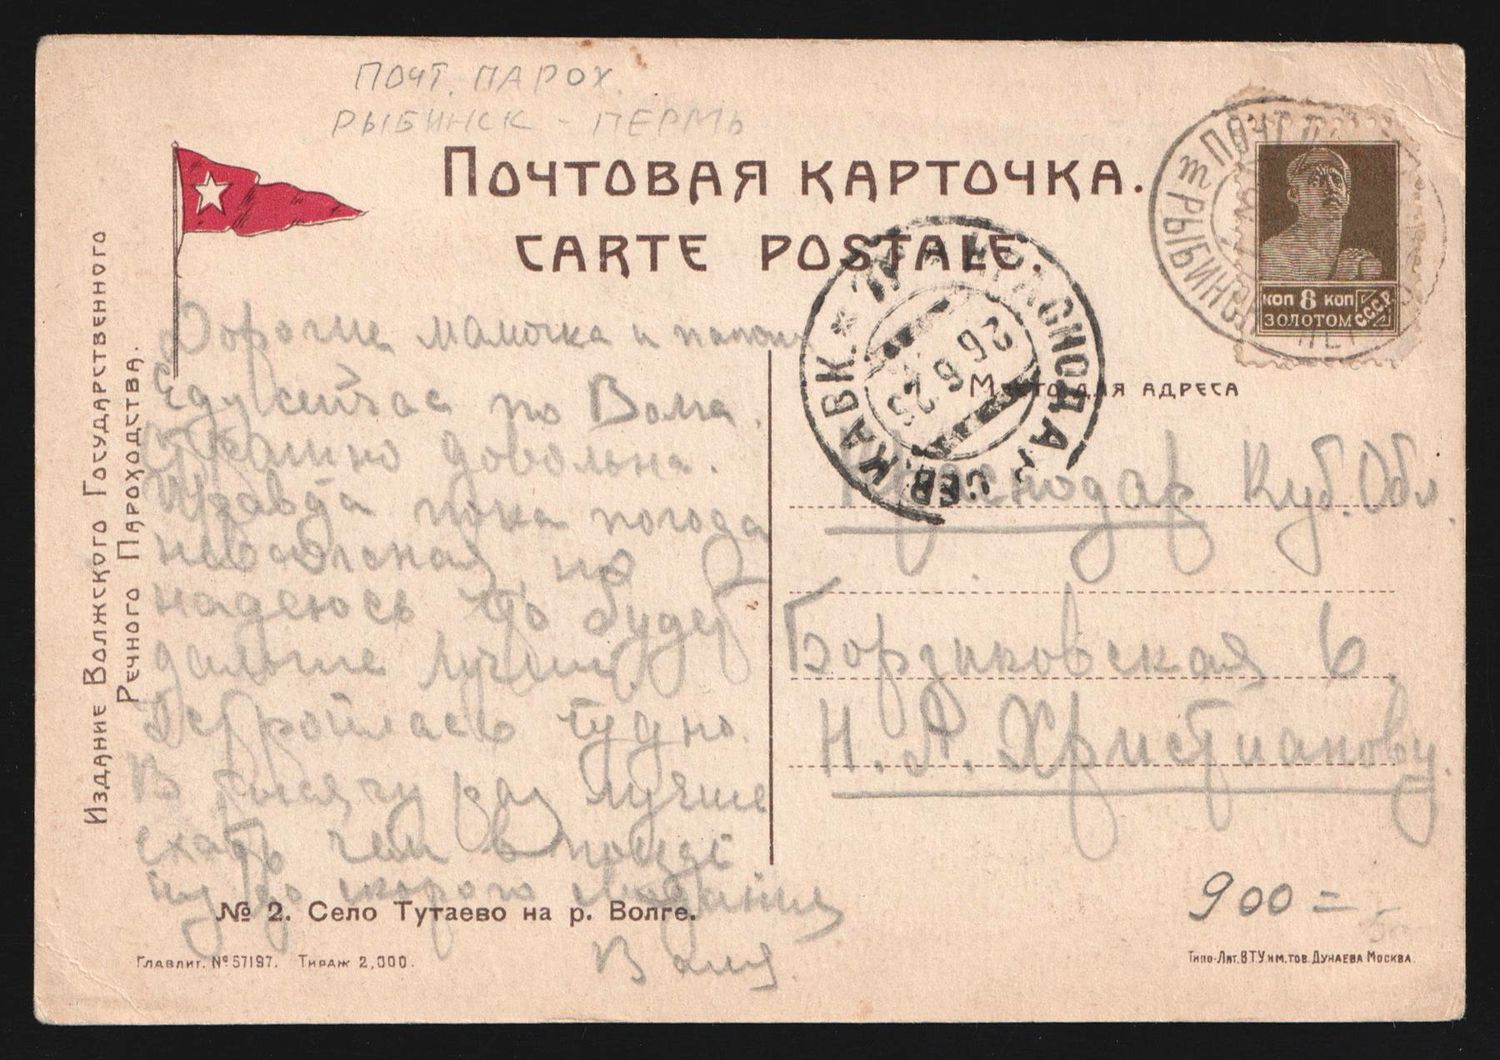 ПОЧТ. ПАРОХ.
РЫБИНСК - ПЕРМЬ
ПОЧТОВАЯ КАРТОЧКА.
CARTE POSTALE.
Издание Волжского Государственного
Речного Пароходства.
Дорогие мамочка и папочка
Еду сейчас по Волге.
довольна.
Правда пока погода
но
надеюсь что будет
дальше лучше
Устроилась чудно.
В тысячу раз лучше
ехать чем в поезде
до скорого свидания
Валя.
№ 2. Село Тутаево на р. Волге.
Главлит. № 57197. Тираж 2,000.
ПОЧТ
РЫБИНСК
КОП 8 КОП
ЗОЛОТОМ С.С.С.Р.
КРАСНОДАР СЕВ. КАВК.
26 6 25
Место для адреса
Краснодар Куб. Обл.
Борзиковская 6
Н. А. Христианову.
900=
Типо-Лит. В.Т.У. им. тов. Дунаева Москва.